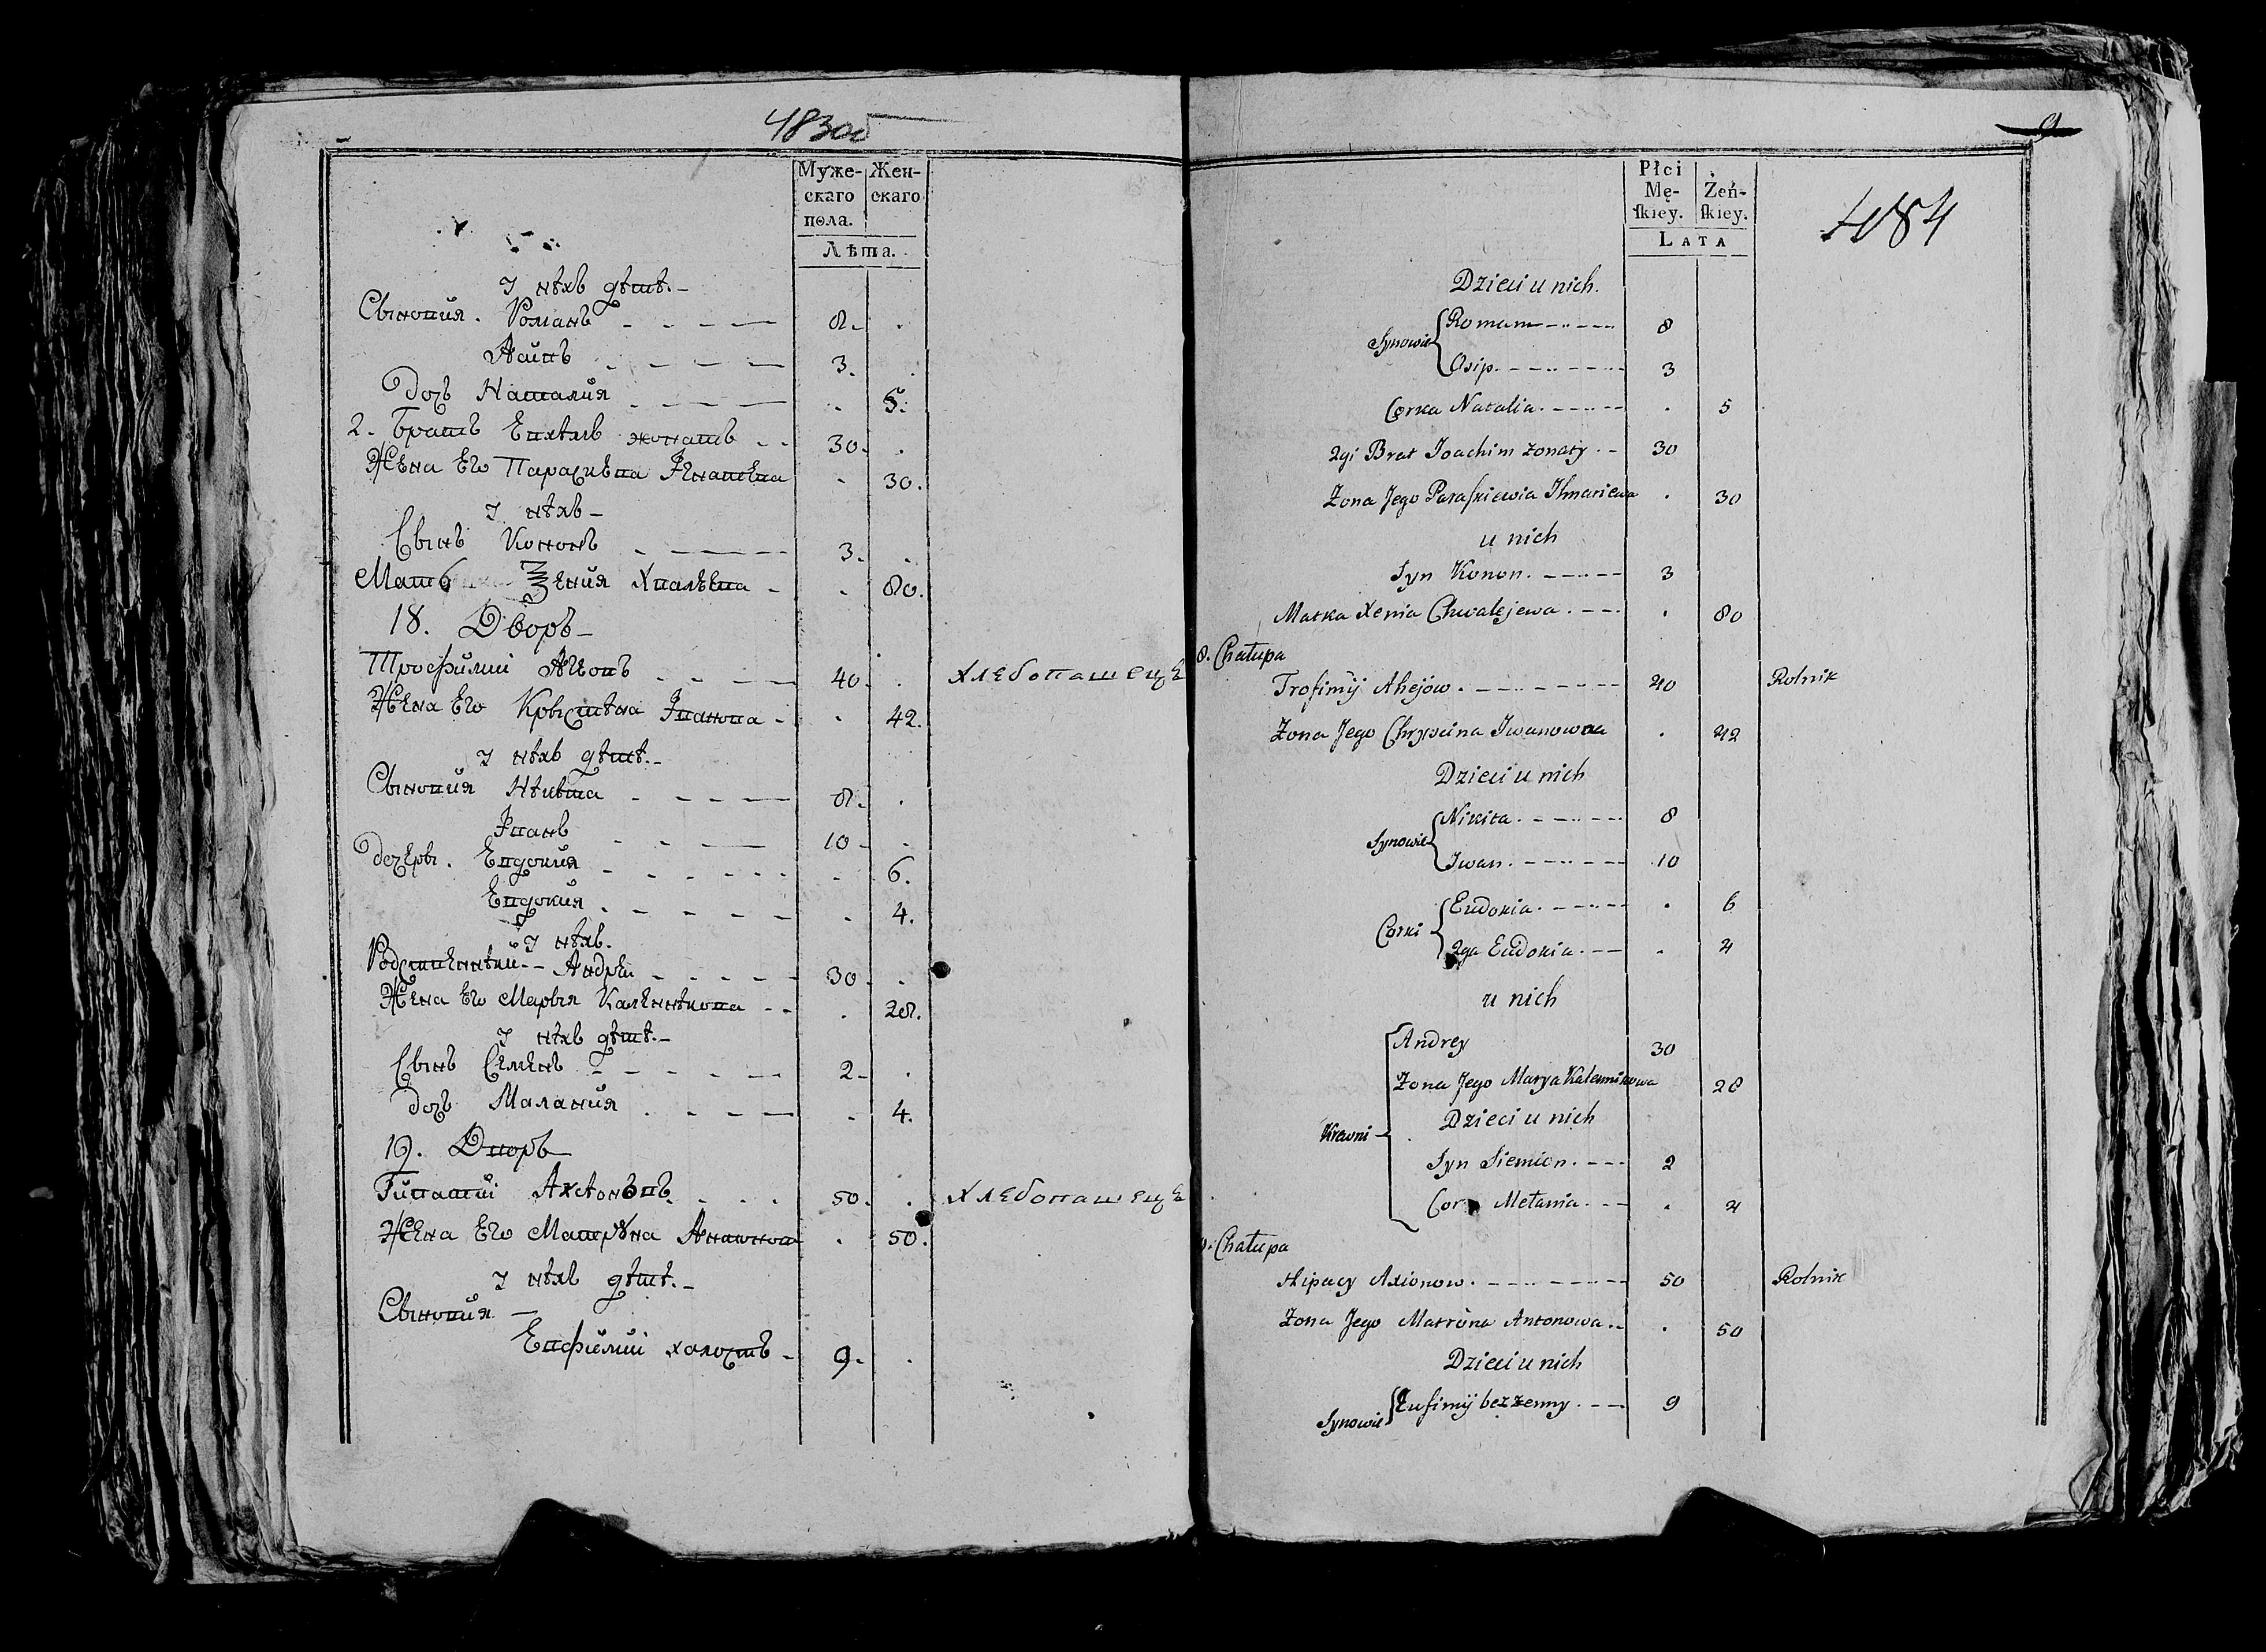 483об
Муже-
скаго
пола.
Жен-
скаго
Лѣта.
У нѣхъ дѣти.-
Сыновия. Романъ 8.
Асипъ 3.
Дочъ Наталия 5.
2. Братъ Евхѣмъ жонатъ 30.
Жена Его Параскева 30.
У нѣхъ -
Сынъ Кононъ 3.
Мать Ксения Хвалѣева 80.
18. Дворъ -
Трофимий 40. хлебопашецъ
Жена Его Крыстѣна Iванова 42.
У нѣхъ дѣти.-
Сыновия Нѣкѣта 8.
Iванъ 10
Дочеры. Евдокия 6.
Евдокия 4.
У нѣхъ.
Родственнѣки.- Андрей 30
Жена Его Марыя Каленнѣкова 28.
У нѣхъ дѣти.-
Сынъ Семенъ 2
Дочъ Малания 4.
19. Дворъ
Гипатий Ахсіоновъ 50. хлебопашецъ
Жена Его Матруна 50.
У нѣхъ дѣти.-
Сыновия -
Евфимий холостъ 9.
9
484
Płci
Mę-
ſkiey.
Żeń-
ſkiey.
LATA
Dzieci u nich.
Synowie Roman 8
Osip 3
Corka Natalia 5
2gi Brat Joachim żonaty 30
Żona Jego Paraskiewia 30
u nich
Syn Konon 3
Matka Xenia Chwalejewa 80
8. Chałupa
Trofimij Ahejów 40 Rolnik
Żona Jego Chryscina Iwanowna 42
Dzieci u nich
Synowie Nikita 8
Iwan 10
Corki Eudokia 6
2ga Eudokia 4
u nich
Krewni Andrey 30
Żona Jego Marya Kalennikowa 28
Dzieci u nich
Syn Siemion 2
Melania 4
9. Chałupa
Hipacy Axionow 50 Rolnik
Żona Jego Matróna Antonowa 50
Dzieci u nich
Synowie Eufimij bezżenny 9